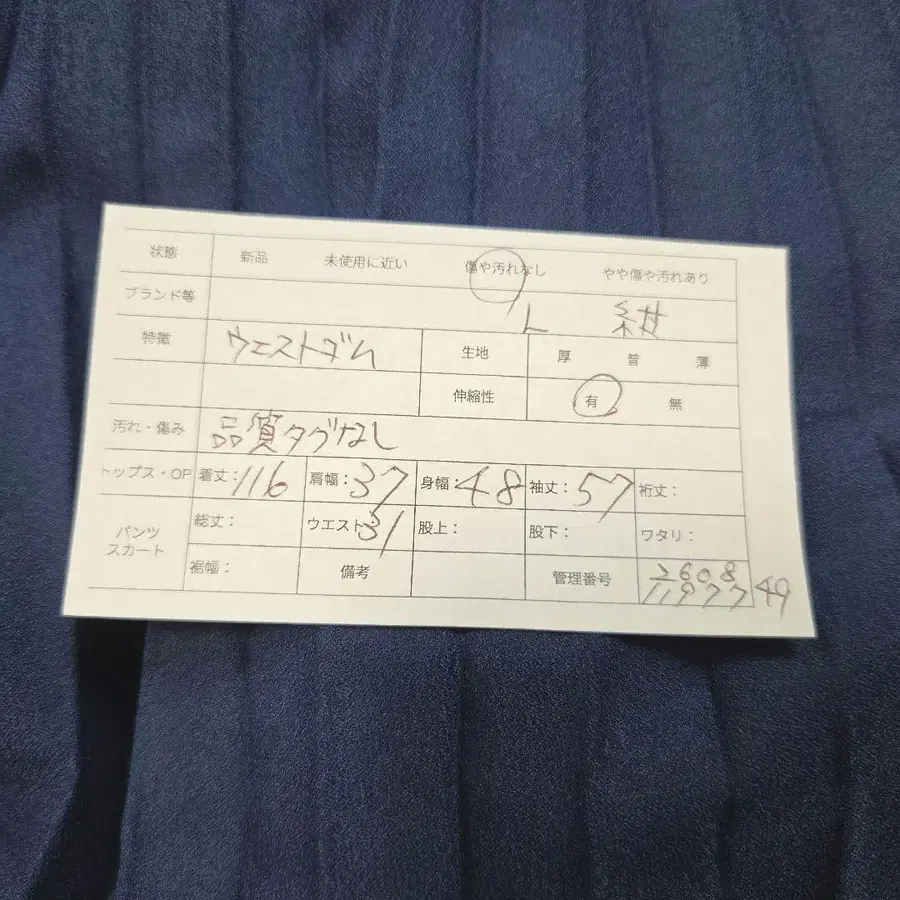 状態 新品 未使用に近い 傷や汚れなし やや傷や汚れあり
ブランド等 L 紺
特徴 ウエストゴム 生地 厚 普 薄
伸縮性 有 無
汚れ・傷み 品質タグなし
トップス・OP 着丈：116 肩幅：37 身幅：48 袖丈：57 裄丈：
パンツ スカート 総丈： ウエスト：31 股上： 股下： ワタリ：
裾幅： 備考 管理番号 2608
49